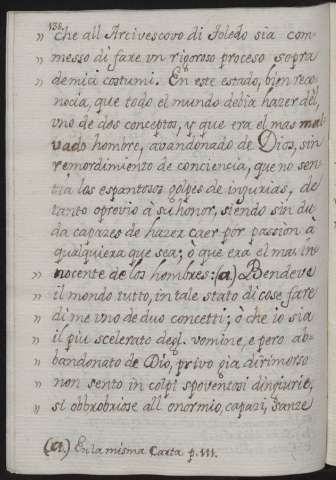 138.
" che all Arcivescovo di Toledo sia com
" messo di fare un rigoroso proceso sopra
" de miei costumi. En este estado, bien reco
nocia, que todo el mundo debia hazer dèl,
uno de dos conceptos, y que era el mas mal
vado hombre, avandonado de Dios, sin
remordimiento de conciencia, que no sen
tia los espantosos golpes de injurias, de
tanto oprovio à su honor, siendo sin du
da capazes de hazer caer por passion à
qualquiera que sea; ò que era el mas in
" nocente de los hombres: (a) Bendeve
" il mondo tutto, in tale stato di cose fare
" di me uno de duo concetti; ò che io sia
" il più scelerato degl. vomine, e pero ab-
" bandonato de Dio, privo gia di rimorso
" non sento in colpi spoventosi dingiurie,
" si obbrobriose all onor mio, capazi, sanze
(a) En la misma Carta p. 111.